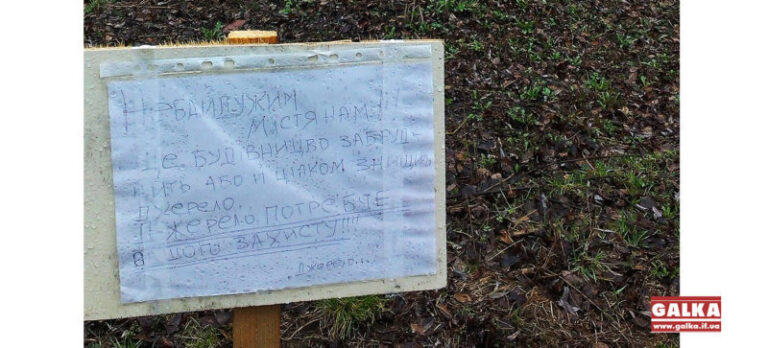 НЕБАЙДУЖИМ
МІСТЯНАМ!!
ЦЕ БУДІВНИЦВО ЗАБРУД-
НИТЬ АБО Й ЦІЛКОМ ЗНИЩИТЬ
ДЖЕРЕЛО.
ДЖЕРЕЛО ПОТРЕБУЄ
ЙОГО ЗАХИСТУ!!!!
ДЖЕРЕЛО...
GALKA
www.galka.if.ua